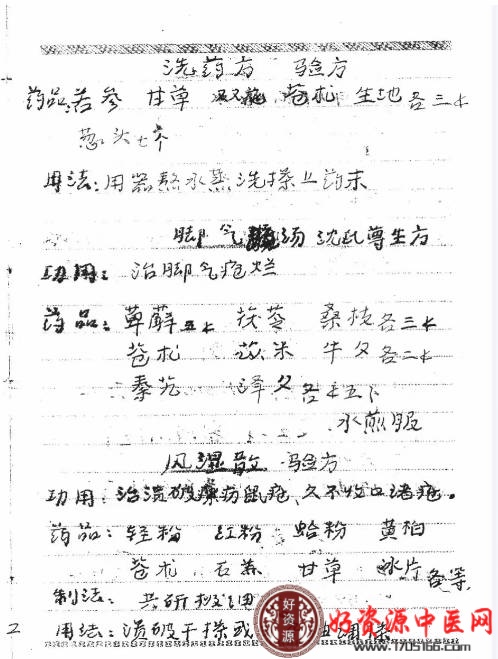 洗药方 验方
药品:苦参 甘草 苍术 生地 各三十
葱头七个
用法:用器熬水熏洗搽上药末
脚气汤 沈氏尊生方
功用:治脚气疮烂
药品:萆薢五十 茯苓 桑枝各三十
苍术 苡米 牛夕各二十
秦艽 泽夕各十五下
水煎服
风湿散 验方
功用:治溃破瘰疬鼠疮、久不收口诸疮。
药品:轻粉 红粉 蛤粉 黄柏
苍术 石羔 甘草 冰片 各等
制法:共研极细
用法:溃破干搽或
2
好资源
好资源中医网
www.1705166.com